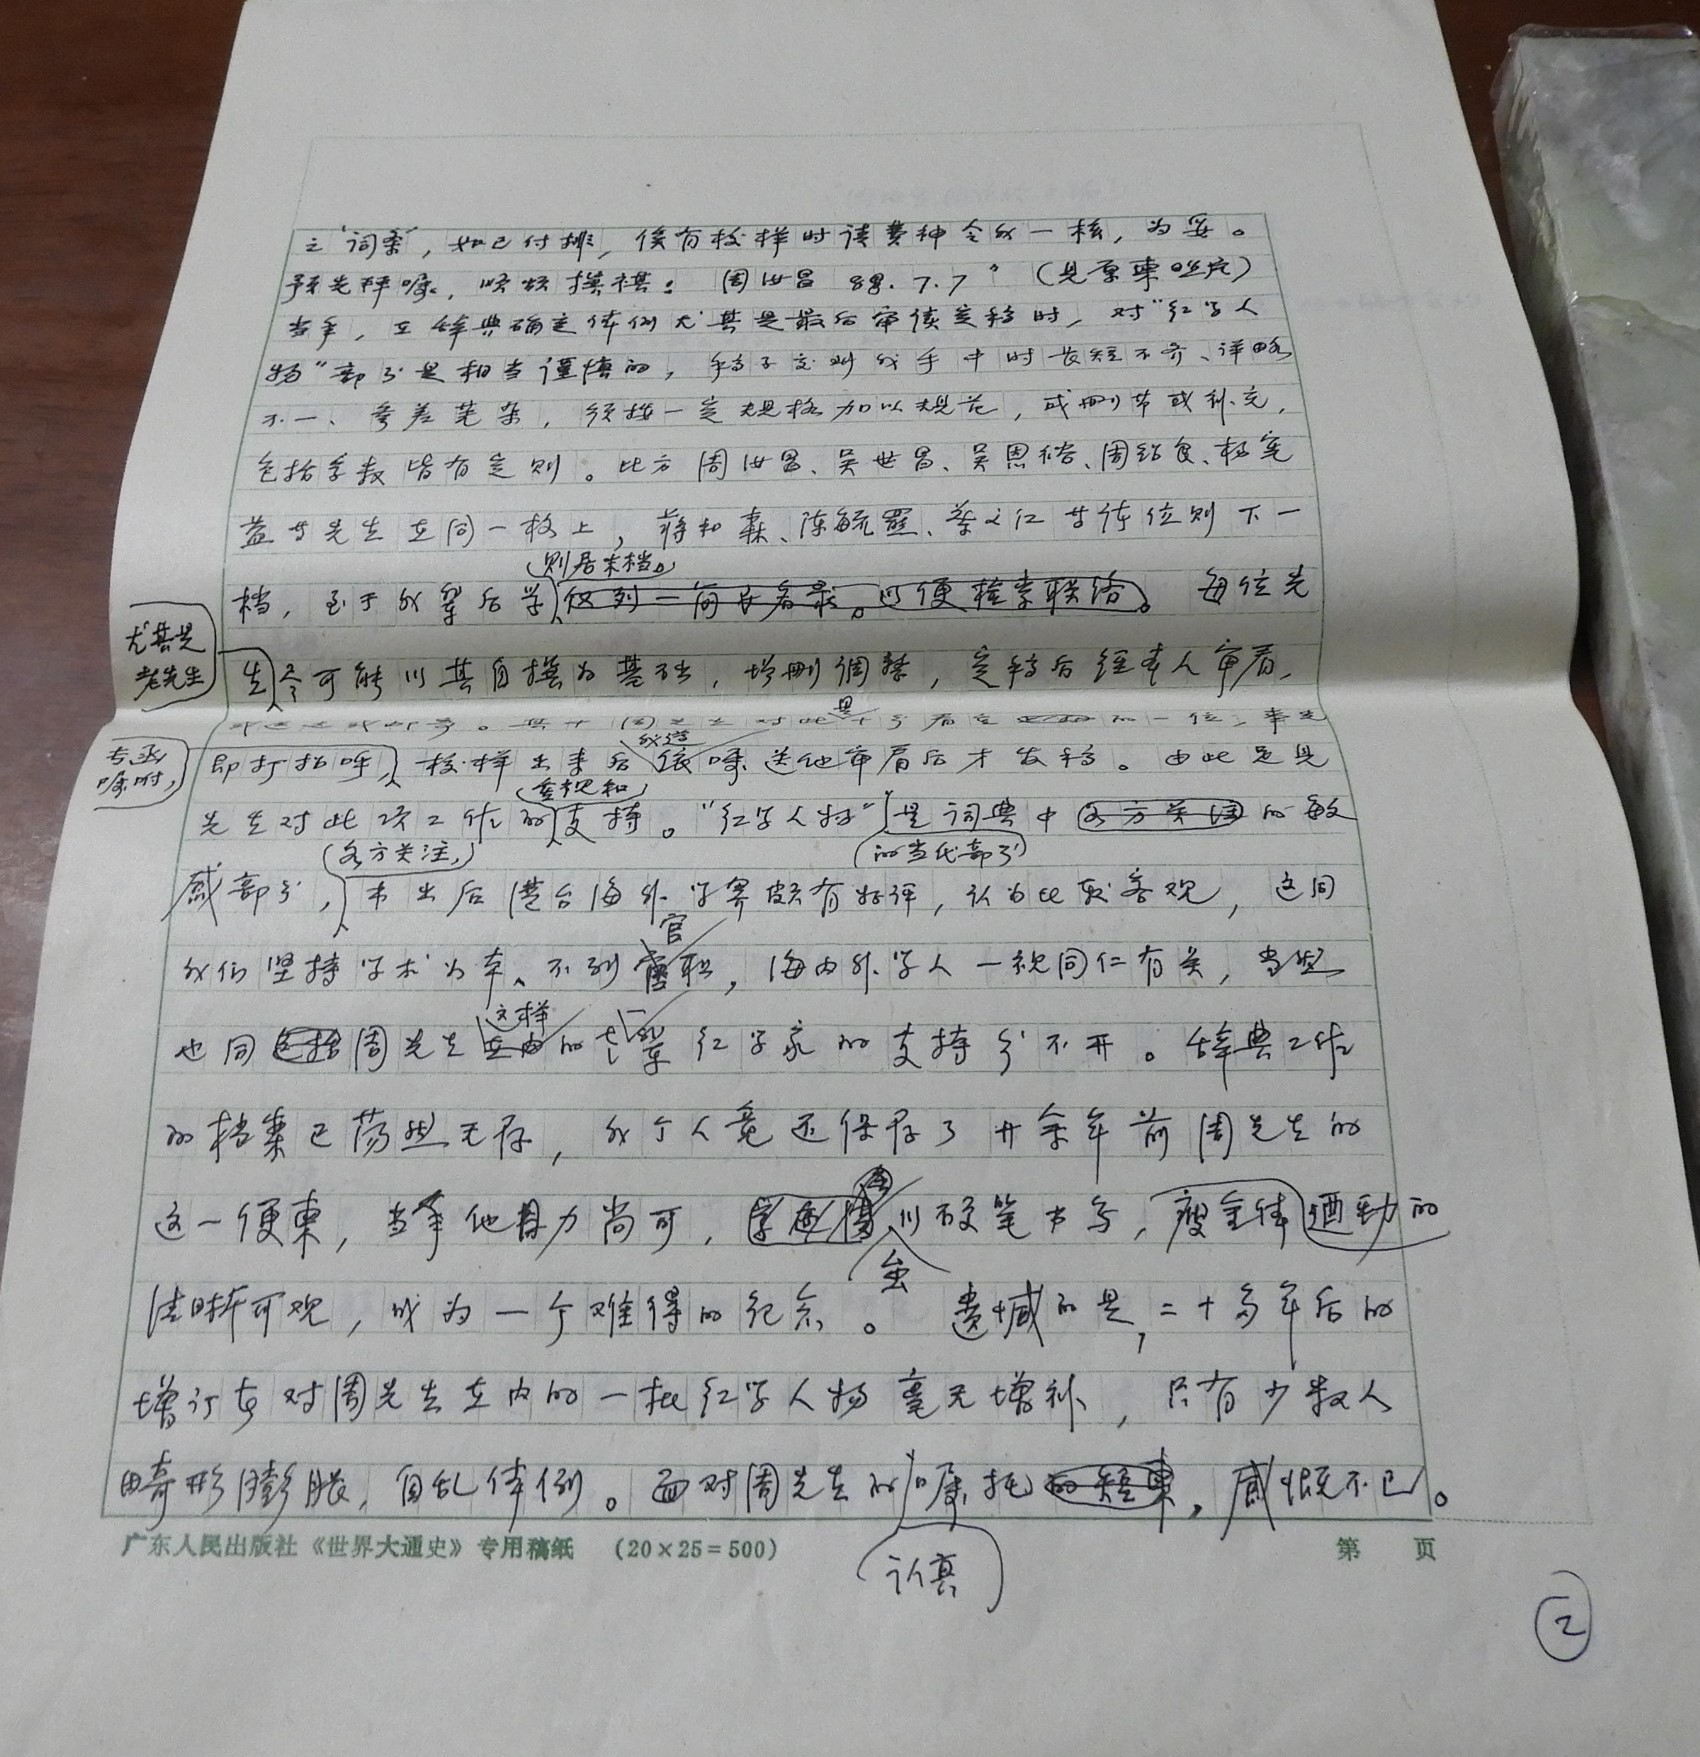 之“词条”，如已付排，俟有校样时请费神令我一核，为妥。
预先拜嘱，顺颂撰祺！周汝昌 88.7.7”（见原柬照片）
当年，在辞典确定体例尤其是最后审读定稿时，对“红学人
物”部分是相当谨慎的，稿子交到我手中时长短不齐、详略
不一、参差芜杂，须按一定规格加以规范，或删节或补充，
包括字数皆有定则。比方周汝昌、吴世昌、吴恩裕、周绍良、杨宪
益等先生在同一格上，蒋和森、陈毓罴、等体位则下一
则居末档。
档，至于我辈后学以便检索联络。每位先
尤其是
老先生
生尽可能以其自撰为基础，增删调整，定稿后经本人审看，
周先生对此是十分的一位，事先
专函
嘱咐，
即打招呼，校样出来后依嘱送他审看后才发稿。由此足见
我遂
重视和
先生对此项工作的支持。“红学人物”是词典中各方关注的敏
各方关注，
的当代部分
感部分，书出后港台海外学界颇有好评，认为比较客观，这同
官
我们坚持学术为本、不列职，海内外学人一视同仁有关，当然
这样
也同包括周先生在内的一辈红学家的支持分不开。辞典工作
的档案已荡然无存，我个人竟还保存了廿余年前周先生的
这一便柬，当年他目力尚可，以硬笔书写，瘦金体遒劲的
虽
清晰可观，成为一个难得的纪念。遗憾的是，二十多年后的
增订本对周先生在内的一批红学人物毫无增补，只有少数人
畸形膨胀，自乱体例。面对周先生的嘱托的短柬，感慨不已。
认真
广东人民出版社《世界大通史》专用稿纸 （20×25＝500） 第 页
2